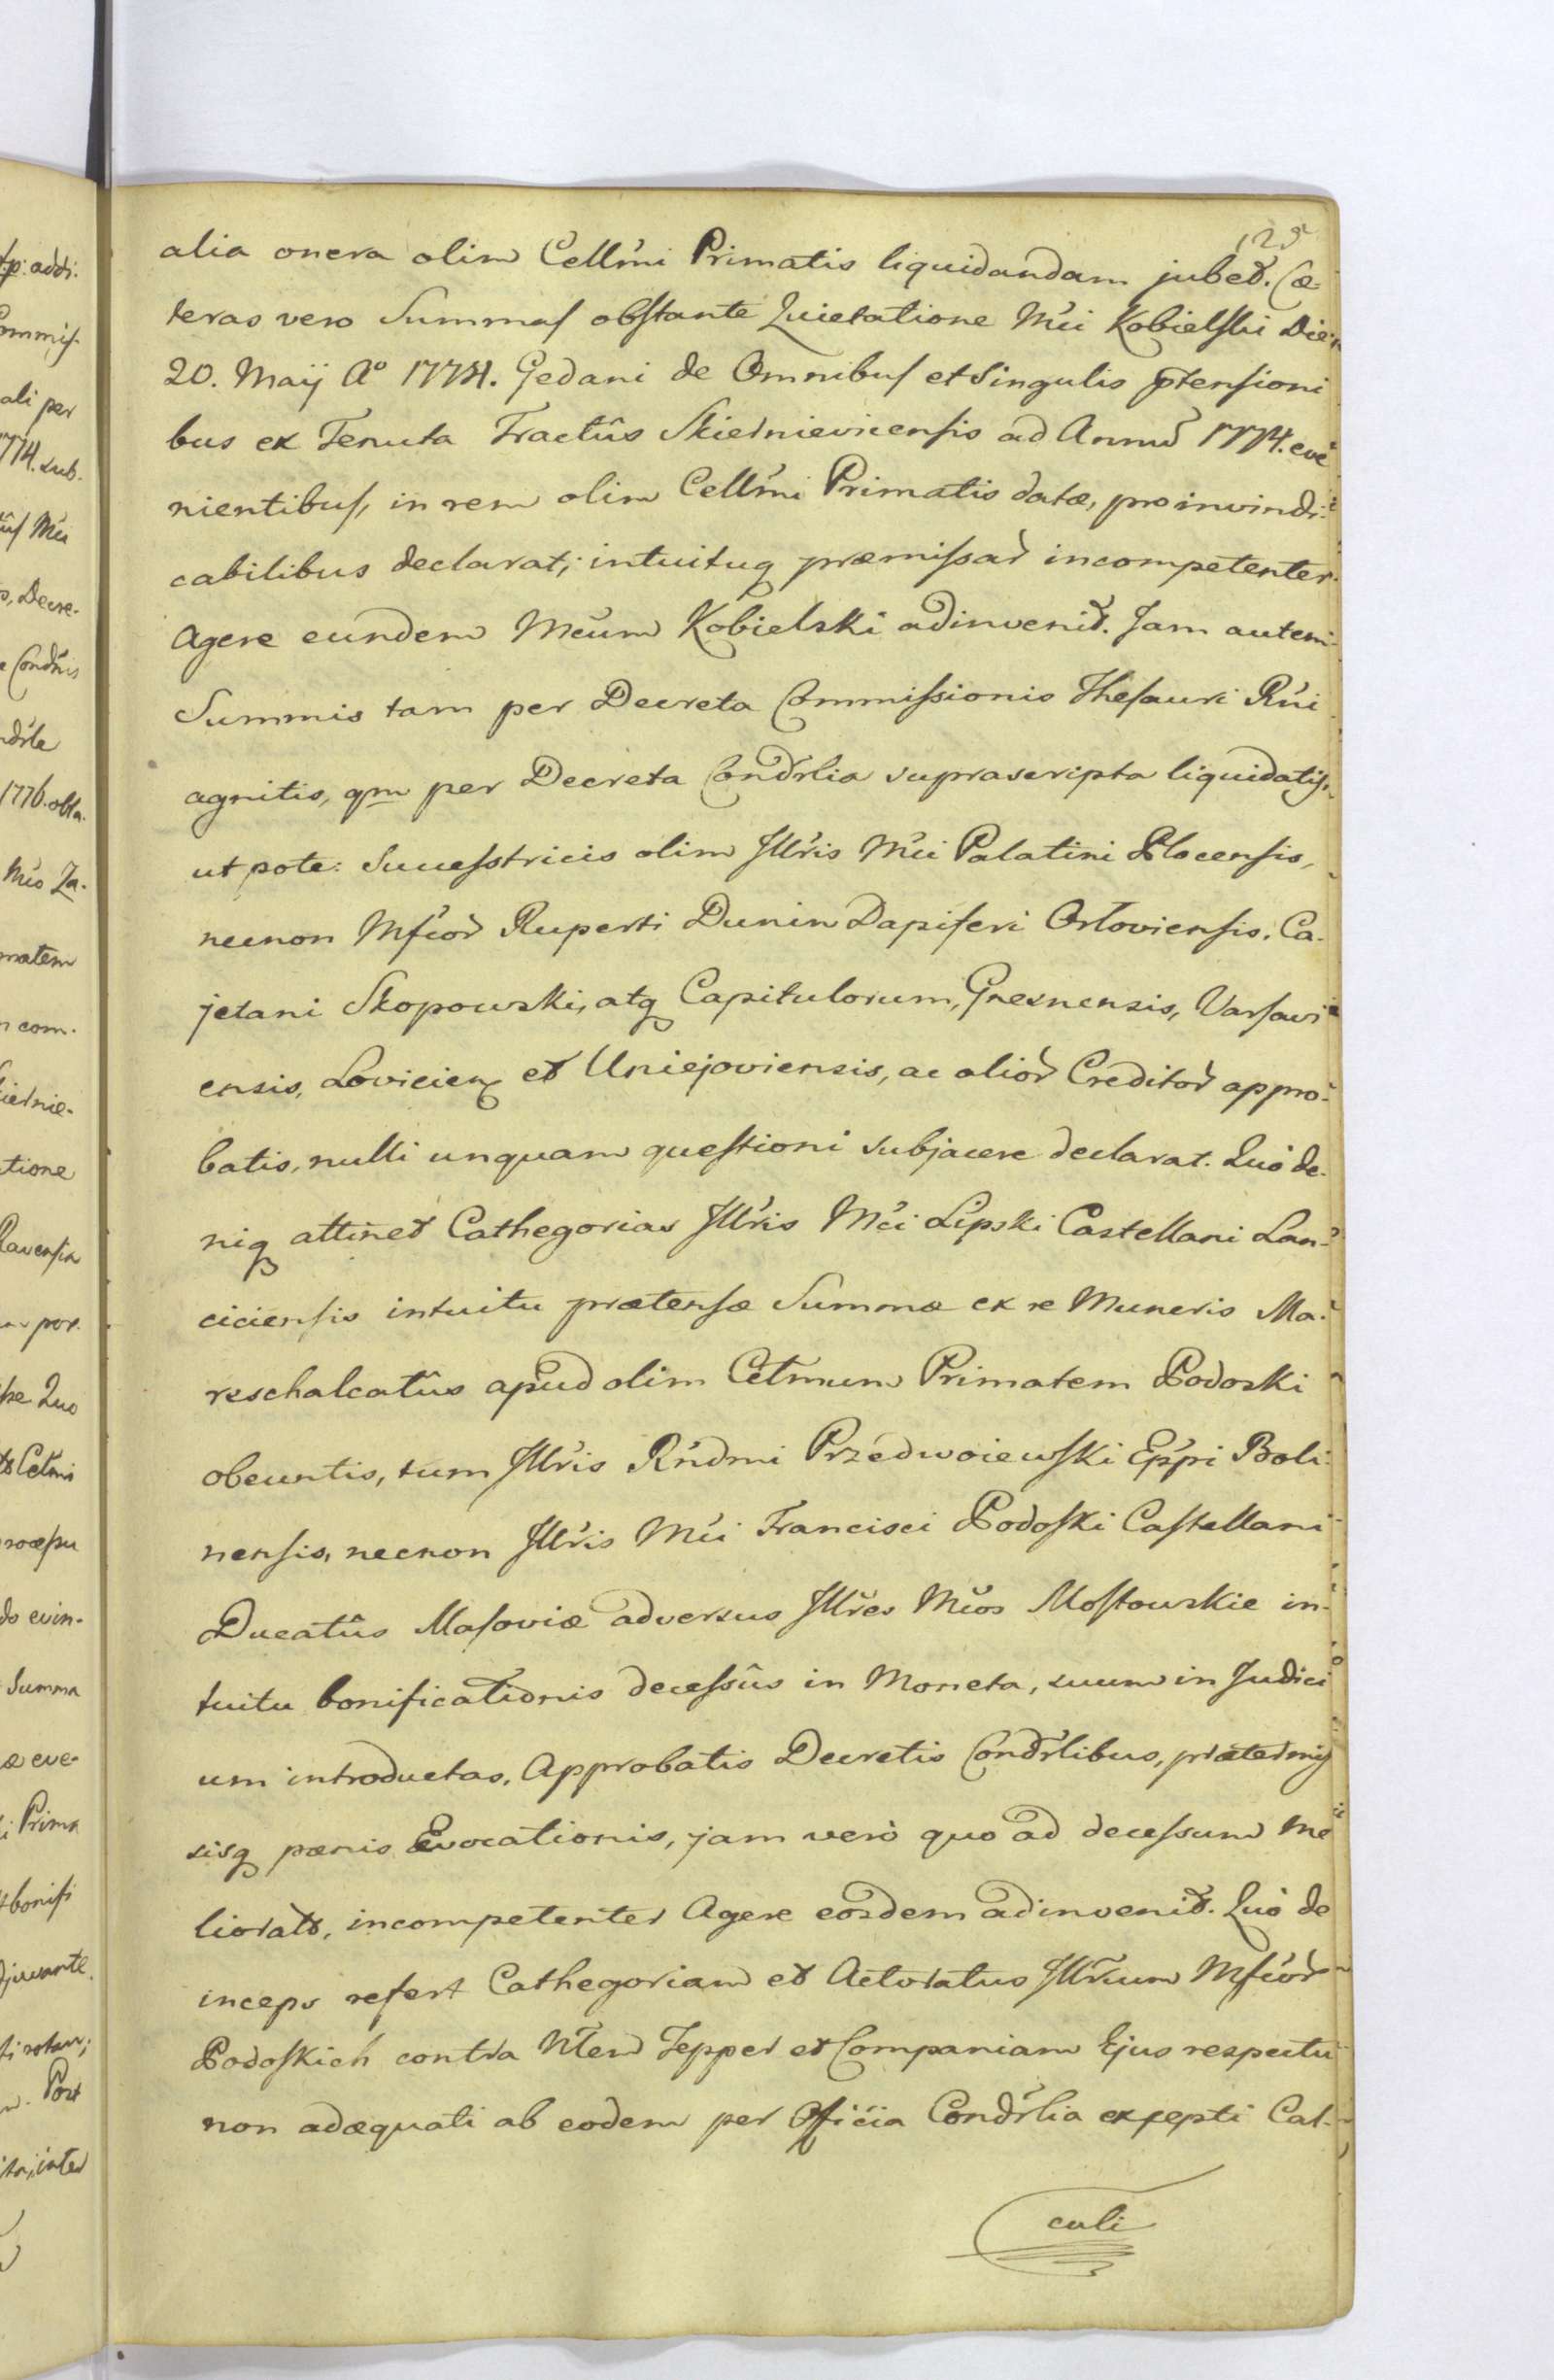 125
alia onera olim Cellm̃i Primatis liquidandam jubet. Cæ=
teras vero Summas obstante Quietatione Mci Kobielski Die
20. Maij Aº 1774. Gedani de Omnibus et Singulis ptensioni
bus ex Tenuta Tractûs Skierniewicensis ad Annũ 1774. eve
nientibus, in rem olim Cellm̃i Primatis datæ, pro invindi:
cabilibus declarat; intuituq præmissar incompetenter
Agere eundem Mcum Kobielski adinvenit. Jam autem
Summis tam per Decreta Commissionis Thesauri Rni
agnitis, qm per Decreta Condrlia suprascripta liquidatis,
ut pote: Sucesstricis olim Illris Mci Palatini Plocensis,
necnon Mfcor Ruperti Dunin Dapiferi Orloviensis, Ca-
jetani Skopowski, atq Capitulorum, Gnesnensis, Varsavi
ensis, Lovicien et Uniejoviensis, ac alior Creditor appro-
batis, nulli unquam questioni subjacere declarat. Quò de-
niq attinet Cathegorias Illris Mci Lipski Castellani Lan-
ciciensis intuitu prætensæ Summæ ex re Muneris Ma-
reschalcatûs apud olim Celmum Primatem Podoski
obeuntis, tum Illris Rndmi Przedwoiewski Eppi Boli-
nensis, necnon Illris Mci Francisci Podoski Castellani
Ducatûs Masoviæ adversus Illres Mcos Mostowskie in-
tuitu bonificationis decessûs in Moneta, suum in Judici
um introductas, Approbatis Decretis Condrlibus, prætermis
sisq pœnis Evocationis, jam verò quo ad decessum Me
liorat, incompetenter Agere eosdem adinvenit. Quò de
inceps refert Cathegoriam et Actoratus Illrium Mfcor
Podoskich contra Nlem Tepper et Companiam Ejus respectu
non adæquati ab eodem per Officia Condrlia excepti Cal-
culi